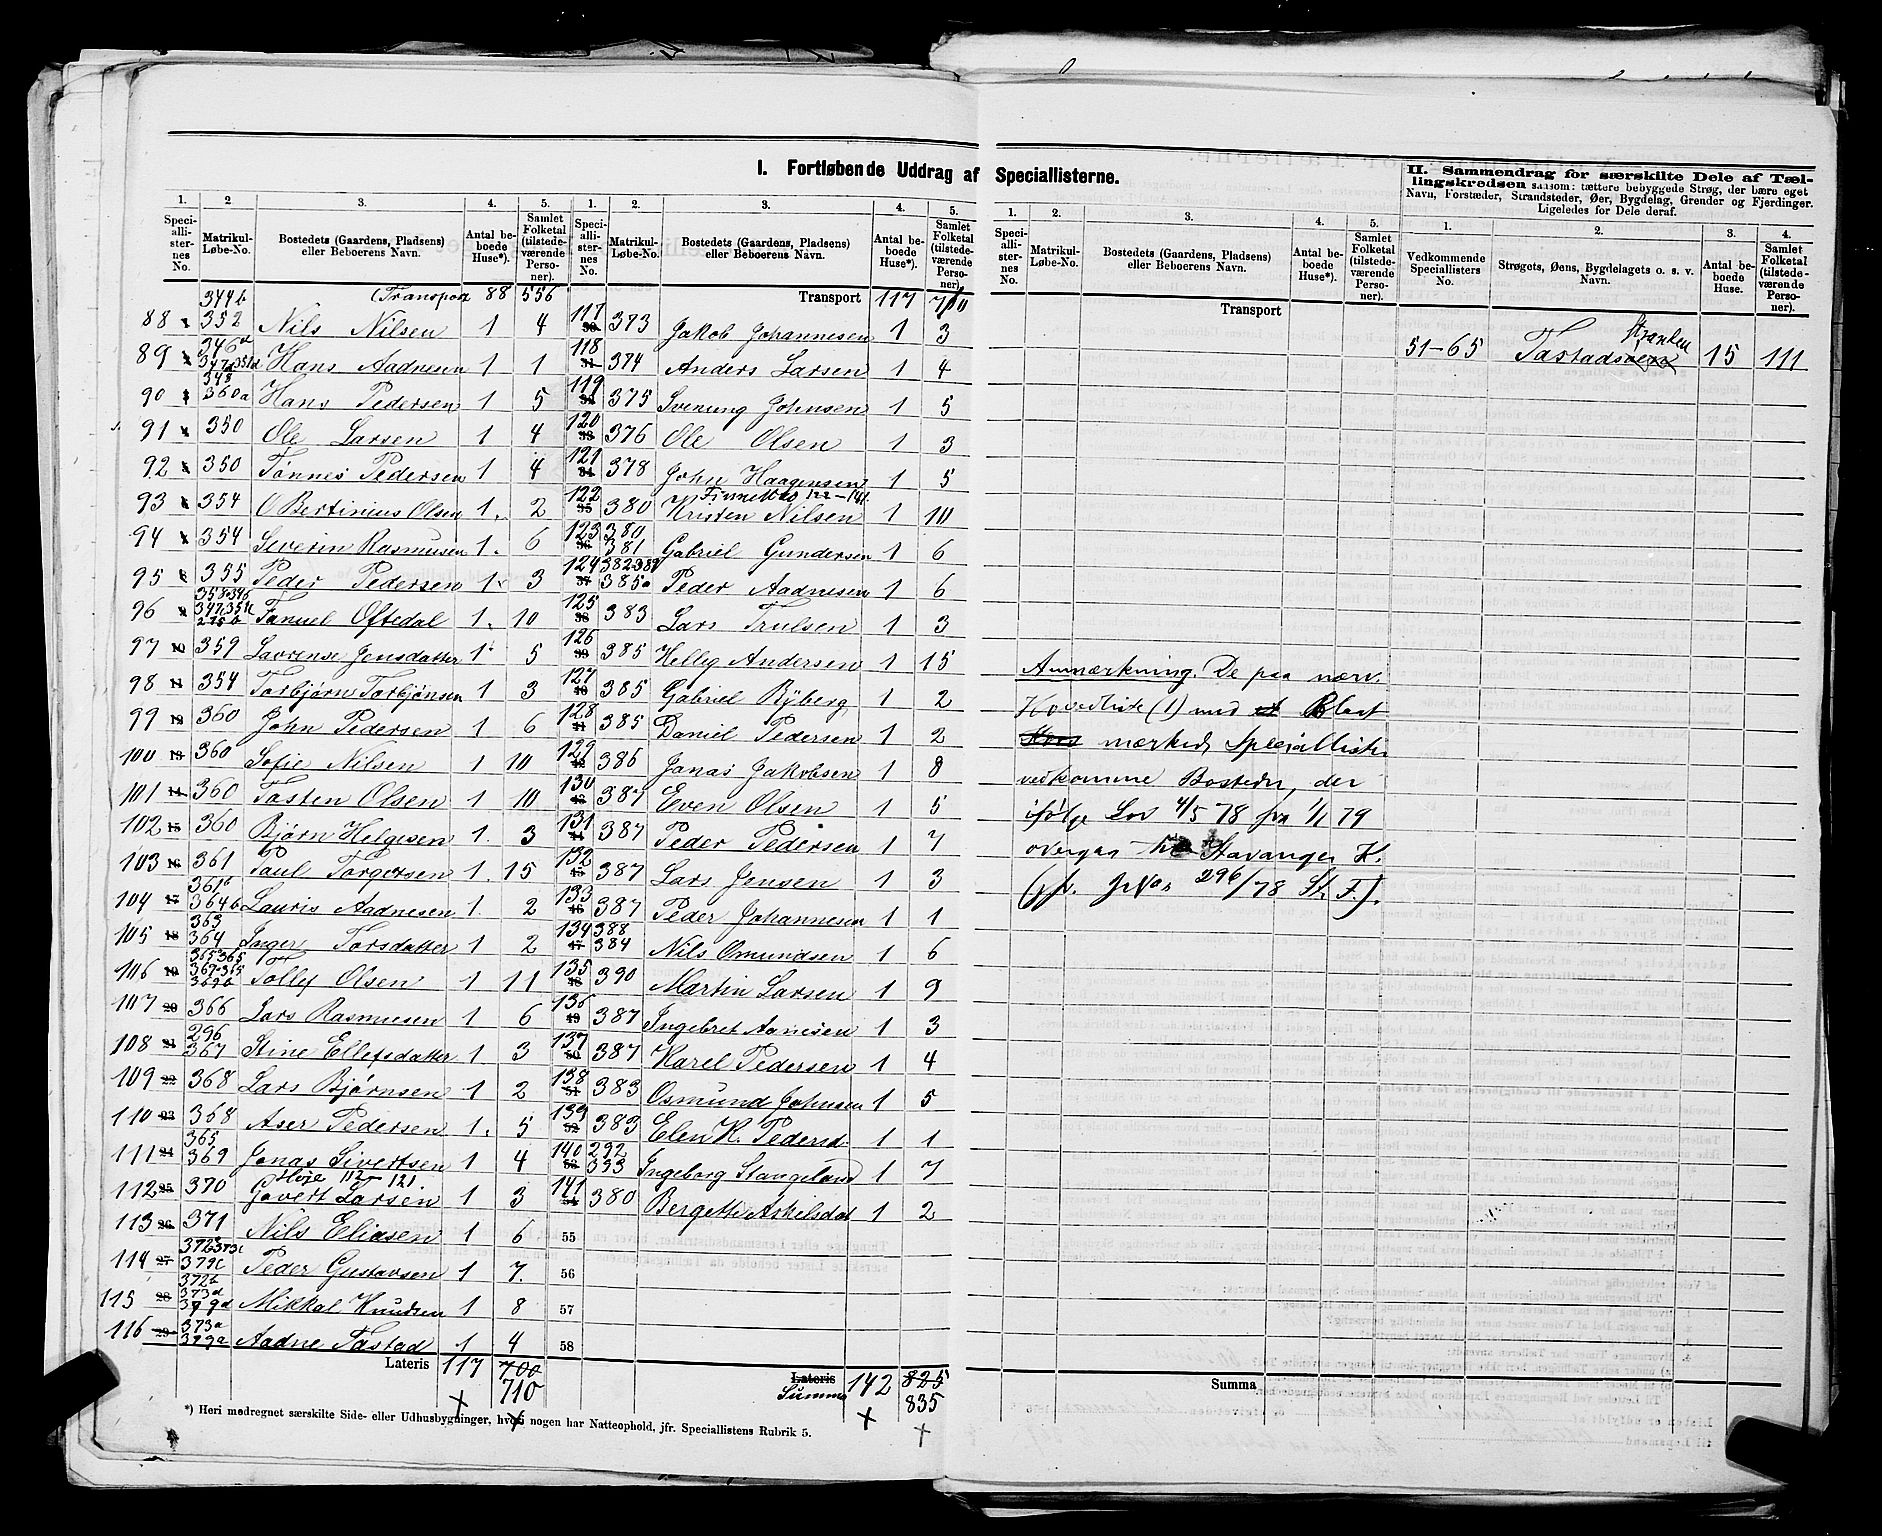 I. Fortløbende Uddrag af Speciallisterne.
II. Sammendrag for særskilte Dele af Tællingskredsen saasom: tættere bebyggede Strøg, der bære eget
Navn, Forstæder, Strandsteder, Øer, Bygdelag, Grender og Fjerdinger.
Ligeledes for Dele deraf.
1. 2 3. 4. 5.
Speciallisternes No. Matrikul-Løbe-No. Bostedets (Gaardens, Pladsens) eller Beboerens Navn. Antal beboede Huse*). Samlet Folketal (tilstedeværende Personer).
344b (Transport 88 556
88 352 Nils Nilsen 1 4
89 346a 347a 351d Hans Aadnesen 1 1
90 348 360a Hans Pedersen 1 5
91 350 Ole Larsen 1 4
92 350 Tønnes Pedersen 1 4
93 354 O Bertinius Olsen 1. 2
94 354 Severin Rasmusen 1. 6
95 355 Peder Pedersen 1 3
96 Tanuel Oftedal 1. 10
97 10 359 Lavrense Jensdatter 1 5
98 11 354 Torbjørn Torbjønsen 1 3
99 12 360 John Pedersen 1 6
100 13 360 Sofie Nilsen 1 10
101 14 360 Tosten Olsen 1 10
102 15 360 Bjørn Helgesen 1. 3
103 16 361 Paul Torgersen 1. 15
104 17 361b 364b Lauris Aadnesen 1. 2
105 18 363 364 Inger Torsdatter 1 2
106 19 Tollef Olsen 1 11
107 20 366 Lars Rasmusen 1 6
108 21 296 367 Stine Ellefsdatter 1 3
109 22 368 Lars Bjørnsen 1 2
110 23 368 Aser Pedersen 1. 5
111 24 365 369 Jonas Sivertsen 1 4
Høje 112-121
112 25 370 Govert Larsen 1 3
113 26 371 Nils Eliasen 1 6
114 27 379c Peder Gustavsen 1 7.
115 28 372b 373d 379d Mikkal Knudsen 1 8
116 29 373a 379a Aadne Tastad 1 4
Lateris 117 700
710
1. 2. 3. 4. 5.
Speciallisternes No. Matrikul-Løbe-No. Bostedets (Gaardens, Pladsens) eller Beboerens Navn. Antal beboede Huse*). Samlet Folketal (tilstedeværende Personer).
Transport 117 710
117 30 373 Jakob Johannesen 1 3
118 31 374 Anders Larsen 1 4
119 32 375 Svenung Johnsen 1 5
120 33 376 Ole Olsen 1 3
121 34 378 John Haagensen 1 5
122-141
122 35 380 Kristen Nilsen 1 10
123 36 380 381 Gabriel Gundersen 1 6
124 37 382 385a Peder Aadnesen 1 6
125 38 383 Lars Trulsen 1 3
126 39 385 Helleg Andersen 1 15
127 40 385 Gabriel Ryberg 1 2
128 41 385 Daniel Pedersen 1 2
129 42 386 Jonas Jakobsen 1 8
130 43 387 Even Olsen 1 5
131 44 387 Peder Pedersen 1 7
132 45 387 Lars Jensen 1 3
133 46 387 Peder Johannesen 1 1
134 47 388 384 Nils Omundsen 1 6
135 48 390 Martin Larsen 1 9
136 49 387 Ingebret Aanesen 1 3
137 50 387 Karel Pedersen 1 4
138 51 383 Osmund Johnsen 1 5
139 52 383 Elen K. Pedersd. 1 1
140 53 292 393 Ingeborg Stangeland 1 7
141 54 380 Bergette Askilsdat 1 2
55
56
57
58
Lateris Summa 142 825
835
*) Heri medregnet særskilte Side- eller Udhusbygninger, hvori nogen har Natteophold, jfr. Speciallistens Rubrik 5.
1. 2. 3. 4. 5.
Speciallisternes No. Matrikul-Løbe-No. Bostedets (Gaardens, Pladsens) eller Beboerens Navn. Antal beboede Huse*). Samlet Folketal (tilstedeværende Personer).
Transport
Anmærkning. De paa nærv.
Hovedliste (1) med Blaat
Kors mærkede Speciallister
vedkomme Bosteder, der
ifølge Lov 4/5 78 fra 1/1 79
overgaa til Stavanger K.
(jfr. JNo. 296/78 St. F.).
Summa
1. 2. 3. 4.
Vedkommende Speciallisters No. Strøgets, Øens, Bygdelagets o. s. v. Navn. Antal beboede Huse. Samlet Folketal (tilstedeværende Personer).
Stranden
51-65 Tastadsveen 15 111